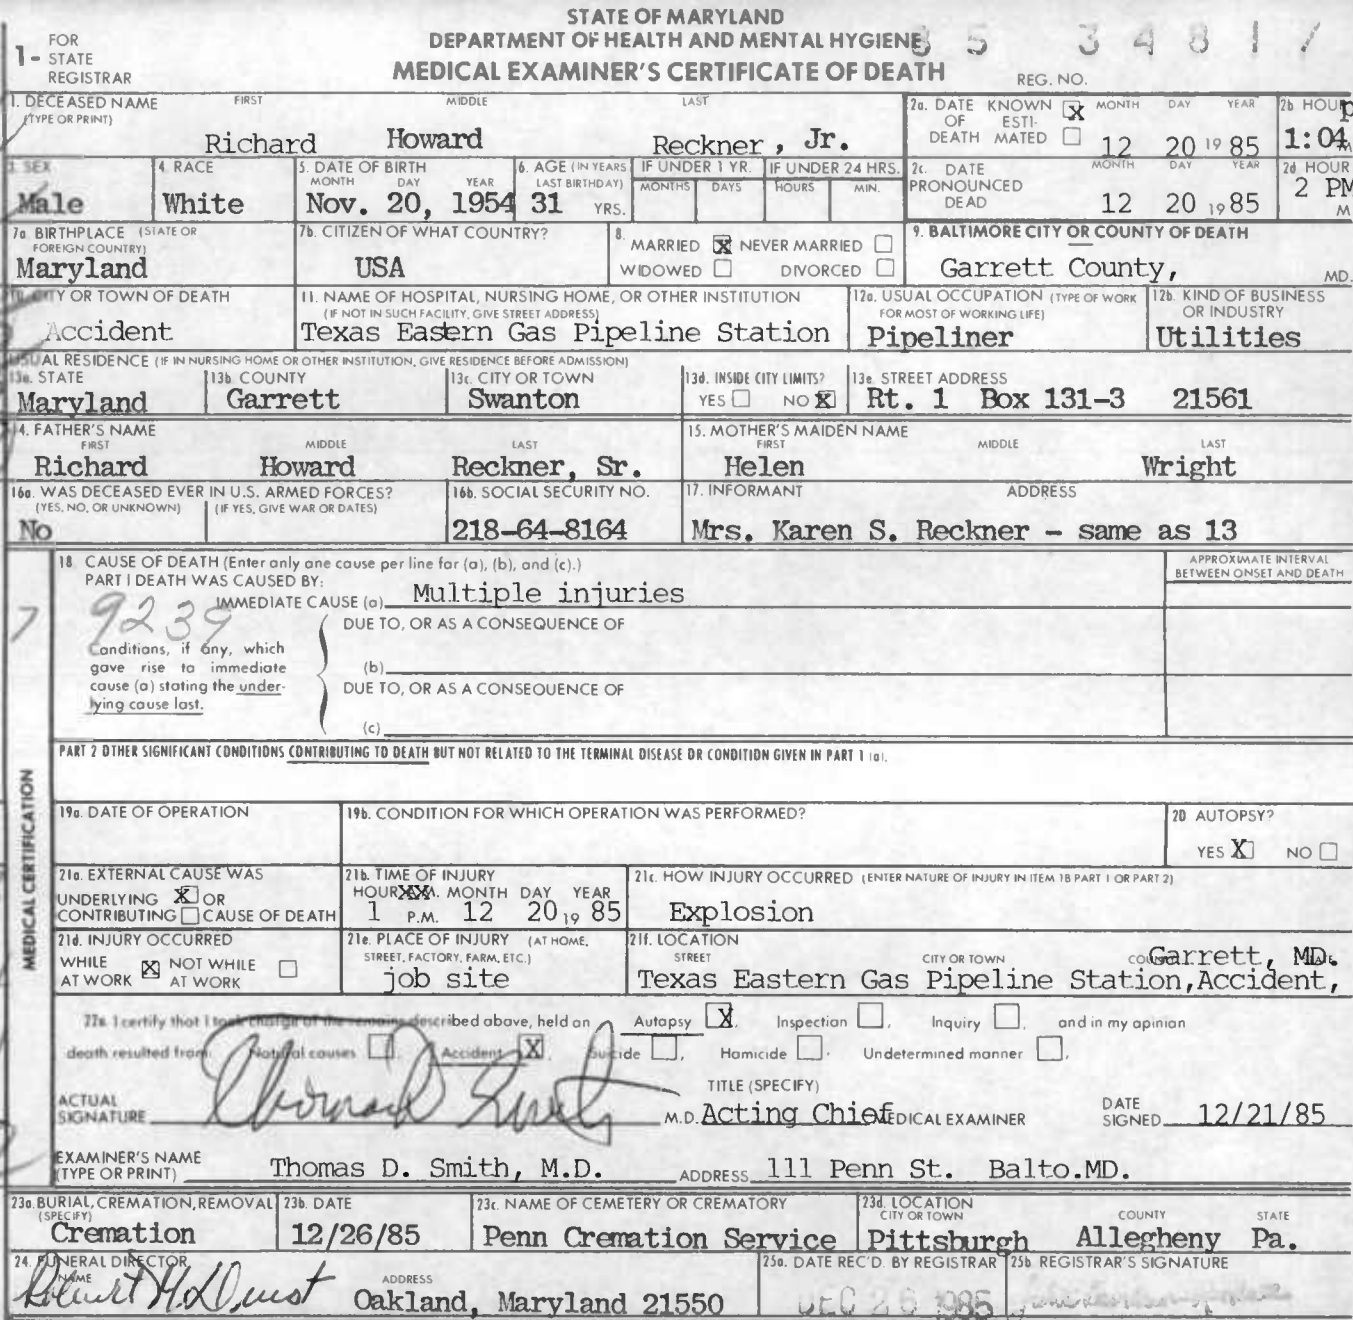 STATE OF MARYLAND
DEPARTMENT OF HEALTH AND MENTAL HYGIENE
MEDICAL EXAMINER'S CERTIFICATE OF DEATH
85 34817
REG. NO.
1- FOR STATE REGISTRAR
1. DECEASED NAME (TYPE OR PRINT) FIRST MIDDLE LAST
Richard Howard Reckner, Jr.
2a. DATE OF DEATH KNOWN X ESTIMATED MONTH DAY YEAR
12 20 19 85
2b HOUR
1:04 P M
3. SEX
Male
4. RACE
White
5. DATE OF BIRTH MONTH DAY YEAR
Nov. 20, 1954
6. AGE (IN YEARS LAST BIRTHDAY)
31 YRS.
IF UNDER 1 YR. MONTHS DAYS
IF UNDER 24 HRS. HOURS MIN.
2c. DATE PRONOUNCED DEAD MONTH DAY YEAR
12 20 19 85
2d HOUR
2 PM M
7a. BIRTHPLACE (STATE OR FOREIGN COUNTRY)
Maryland
7b. CITIZEN OF WHAT COUNTRY?
USA
8. MARRIED X NEVER MARRIED
WIDOWED DIVORCED
9. BALTIMORE CITY OR COUNTY OF DEATH
Garrett County, MD.
10. CITY OR TOWN OF DEATH
Accident
11. NAME OF HOSPITAL, NURSING HOME, OR OTHER INSTITUTION
(IF NOT IN SUCH FACILITY, GIVE STREET ADDRESS)
Texas Eastern Gas Pipeline Station
12a. USUAL OCCUPATION (TYPE OF WORK FOR MOST OF WORKING LIFE)
Pipeliner
12b. KIND OF BUSINESS OR INDUSTRY
Utilities
USUAL RESIDENCE (IF IN NURSING HOME OR OTHER INSTITUTION, GIVE RESIDENCE BEFORE ADMISSION)
13a. STATE
Maryland
13b. COUNTY
Garrett
13c. CITY OR TOWN
Swanton
13d. INSIDE CITY LIMITS?
YES NO X
13e. STREET ADDRESS
Rt. 1 Box 131-3 21561
14. FATHER'S NAME FIRST MIDDLE LAST
Richard Howard Reckner, Sr.
15. MOTHER'S MAIDEN NAME FIRST MIDDLE LAST
Helen Wright
16a. WAS DECEASED EVER IN U.S. ARMED FORCES?
(YES, NO, OR UNKNOWN) (IF YES, GIVE WAR OR DATES)
No
16b. SOCIAL SECURITY NO.
218-64-8164
17. INFORMANT ADDRESS
Mrs. Karen S. Reckner - same as 13
MEDICAL CERTIFICATION
18. CAUSE OF DEATH (Enter only one cause per line for (a), (b), and (c).)
APPROXIMATE INTERVAL BETWEEN ONSET AND DEATH
PART I DEATH WAS CAUSED BY:
IMMEDIATE CAUSE (a) Multiple injuries
7 9239
DUE TO, OR AS A CONSEQUENCE OF
Conditions, if any, which gave rise to immediate cause (a) stating the underlying cause last.
(b)
DUE TO, OR AS A CONSEQUENCE OF
(c)
PART 2 OTHER SIGNIFICANT CONDITIONS CONTRIBUTING TO DEATH BUT NOT RELATED TO THE TERMINAL DISEASE OR CONDITION GIVEN IN PART 1 (a).
19a. DATE OF OPERATION
19b. CONDITION FOR WHICH OPERATION WAS PERFORMED?
20 AUTOPSY?
YES X NO
21a. EXTERNAL CAUSE WAS
UNDERLYING X OR
CONTRIBUTING CAUSE OF DEATH
21b. TIME OF INJURY
HOUR XXX. MONTH DAY YEAR
1 P.M. 12 20 19 85
21c. HOW INJURY OCCURRED (ENTER NATURE OF INJURY IN ITEM 18 PART 1 OR PART 2)
Explosion
21d. INJURY OCCURRED
WHILE AT WORK X NOT WHILE AT WORK
21e. PLACE OF INJURY (AT HOME, STREET, FACTORY, FARM, ETC.)
job site
21f. LOCATION STREET CITY OR TOWN
Garrett, MD.
Texas Eastern Gas Pipeline Station, Accident,
22a. I certify that I took charge of the remains described above, held an Autopsy X, Inspection , Inquiry , and in my opinion
death resulted from: Natural causes , Accident X, Suicide , Homicide . Undetermined manner .
ACTUAL SIGNATURE Thomas D Smith M.D.
TITLE (SPECIFY)
Acting Chief MEDICAL EXAMINER
DATE SIGNED 12/21/85
EXAMINER'S NAME (TYPE OR PRINT) Thomas D. Smith, M.D. ADDRESS 111 Penn St. Balto.MD.
23a. BURIAL, CREMATION, REMOVAL (SPECIFY)
Cremation
23b. DATE
12/26/85
23c. NAME OF CEMETERY OR CREMATORY
Penn Cremation Service
23d. LOCATION CITY OR TOWN COUNTY STATE
Pittsburgh Allegheny Pa.
24. FUNERAL DIRECTOR NAME ADDRESS
Oakland, Maryland 21550
25a. DATE REC'D. BY REGISTRAR
DEC 26 1985
25b. REGISTRAR'S SIGNATURE